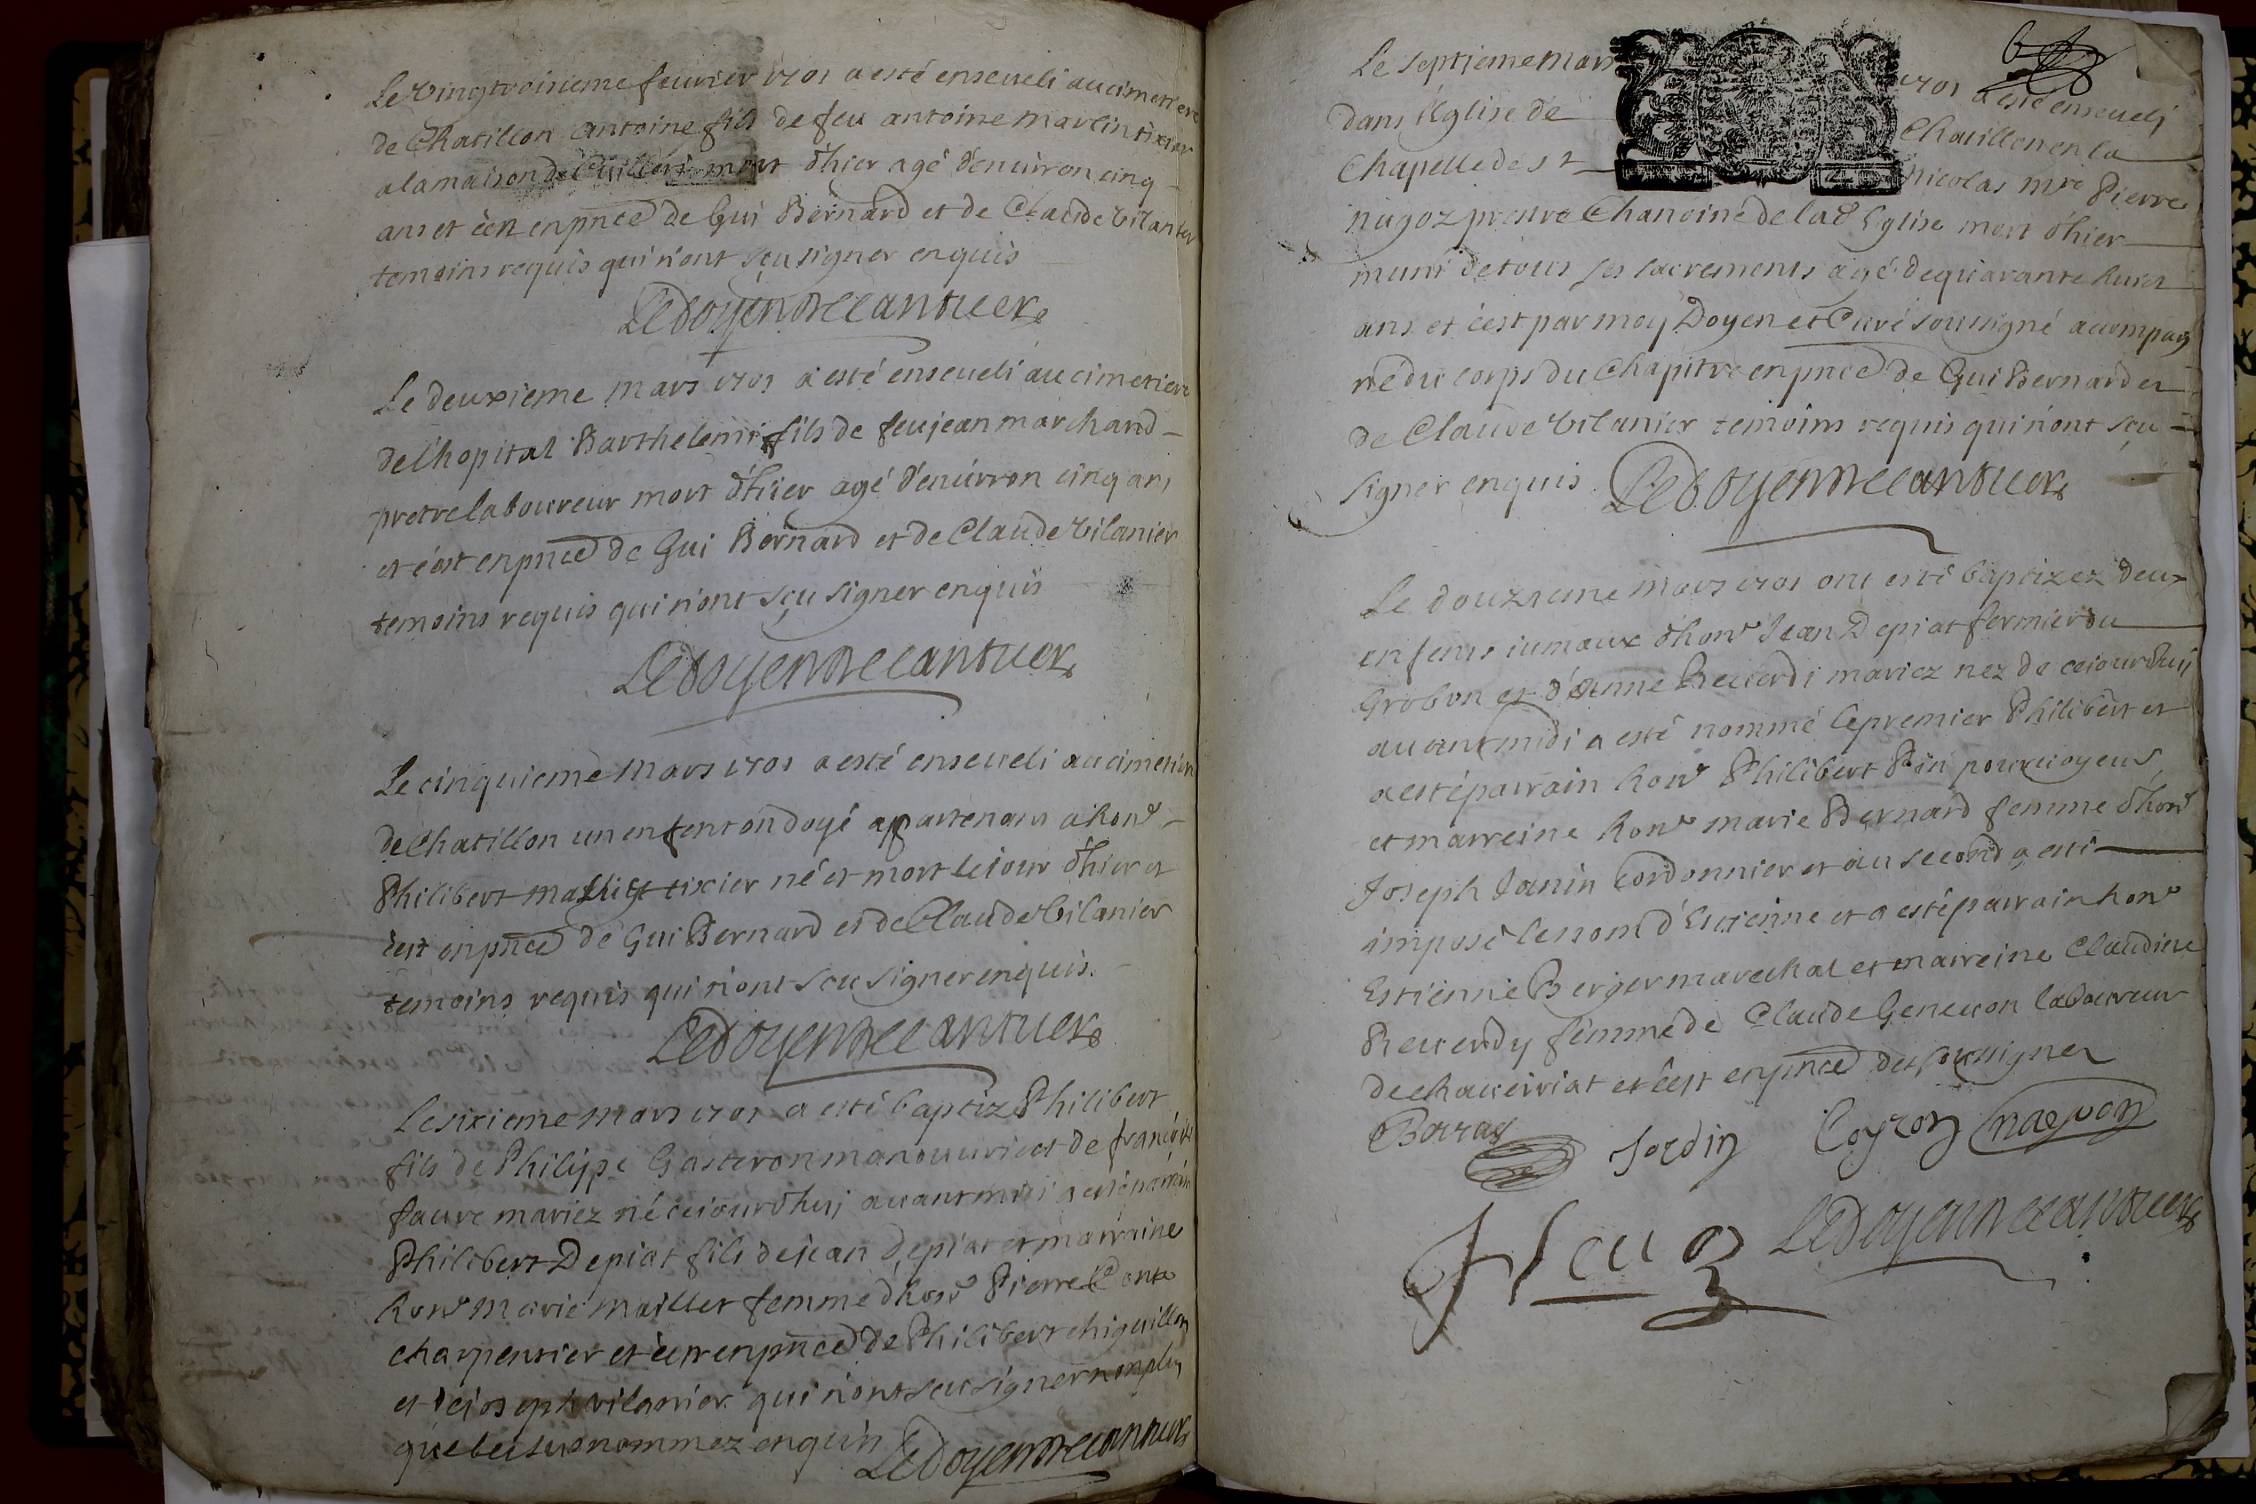 Le vingtroisieme feurier 1701 a esté enseueli au cimetiere
de Chatillon antoine fils de feu antoine martin tixier
a la maison de mort d'hier agé d'enuirron cinq
ans et c'en enpn̄ce de Gui Bernard et de Claude Vilanier
temoins requis qui n'ont sçu signer enquis
Le doyen
Le deuxieme mars 1701 a esté enseueli au cimetiere
de l'hopital Barthelemi fils de feu jean marchand
pretre laboureur mort d'hier agé d'enuirron cinq ans
et c'est enpn̄ce de Gui Bernard et de Claude Vilanier
temoins requis qui n'ont sçu signer enquis
Le doyen
Le cinquieme mars 1701 a esté enseueli au cimetiere
de Chatillon un enfent ondoyé appartenant a hon̄e
Philibert tixier né et mort le jour d'hier et
c'est enpn̄ce de Gui Bernard et de Claude Vilanier
temoins requis qui n'ont sceu signer enquis.
Le doyen
Le sixieme mars 1701 a esté baptizé Philibert
fils de Philippe Gasteron manouurier et de françoise
faure mariez né ce jourd'huj auant midi a esté parrain
Philibert Depiat fils de jean depiat et marraine
hon̄e marie maillet femme d'hon̄e Pierre
charpentier et c'est enpn̄ce de Philibert chiquillon
et de joseph vilanier qui n'ont sceu signer non plus
que les susnommez enquis Le doyen
Le septieme mars 1701 a esté enseuelj
dans l'Eglise de Chatillon en la
Chapelle de st nicolas mre Pierre
nugoz pretre Chanoine de lad Eglise mort d'hier
muni de tous ses sacrements agé de quarante huict
ans et c'est par moy Doyen et Curé soussigné accompag
né du corps du Chapitre enpn̄ce de Gui Bernard et
de Claude Vilanier temoins requis qui n'ont sçu
signer enquis Le doyen
Le douzieme mars 1701 ont esté baptizez deux
enfents iumaux d'hon̄e Jean Depiat fermier du
Grobon et d'Anne Reuerdi mariez nez de cejourdhuj
auant midi a esté nommé le premier Philibert et
a esté parrain hon̄e Philibert Pin pouruoyeur
et marreine hon̄e marie Bernard femme d'hon̄e
Joseph Janin Cordonnier et au second a esté
imposé le nom d'Estienne et a esté parrain hon̄e
Estienne Berger marechal et marreine Claudine
Reuerdy femme de Claude Geneuon laboureur
de chaueiriat et c'est enpn̄ce des soussignez
Jordin
Le doyen